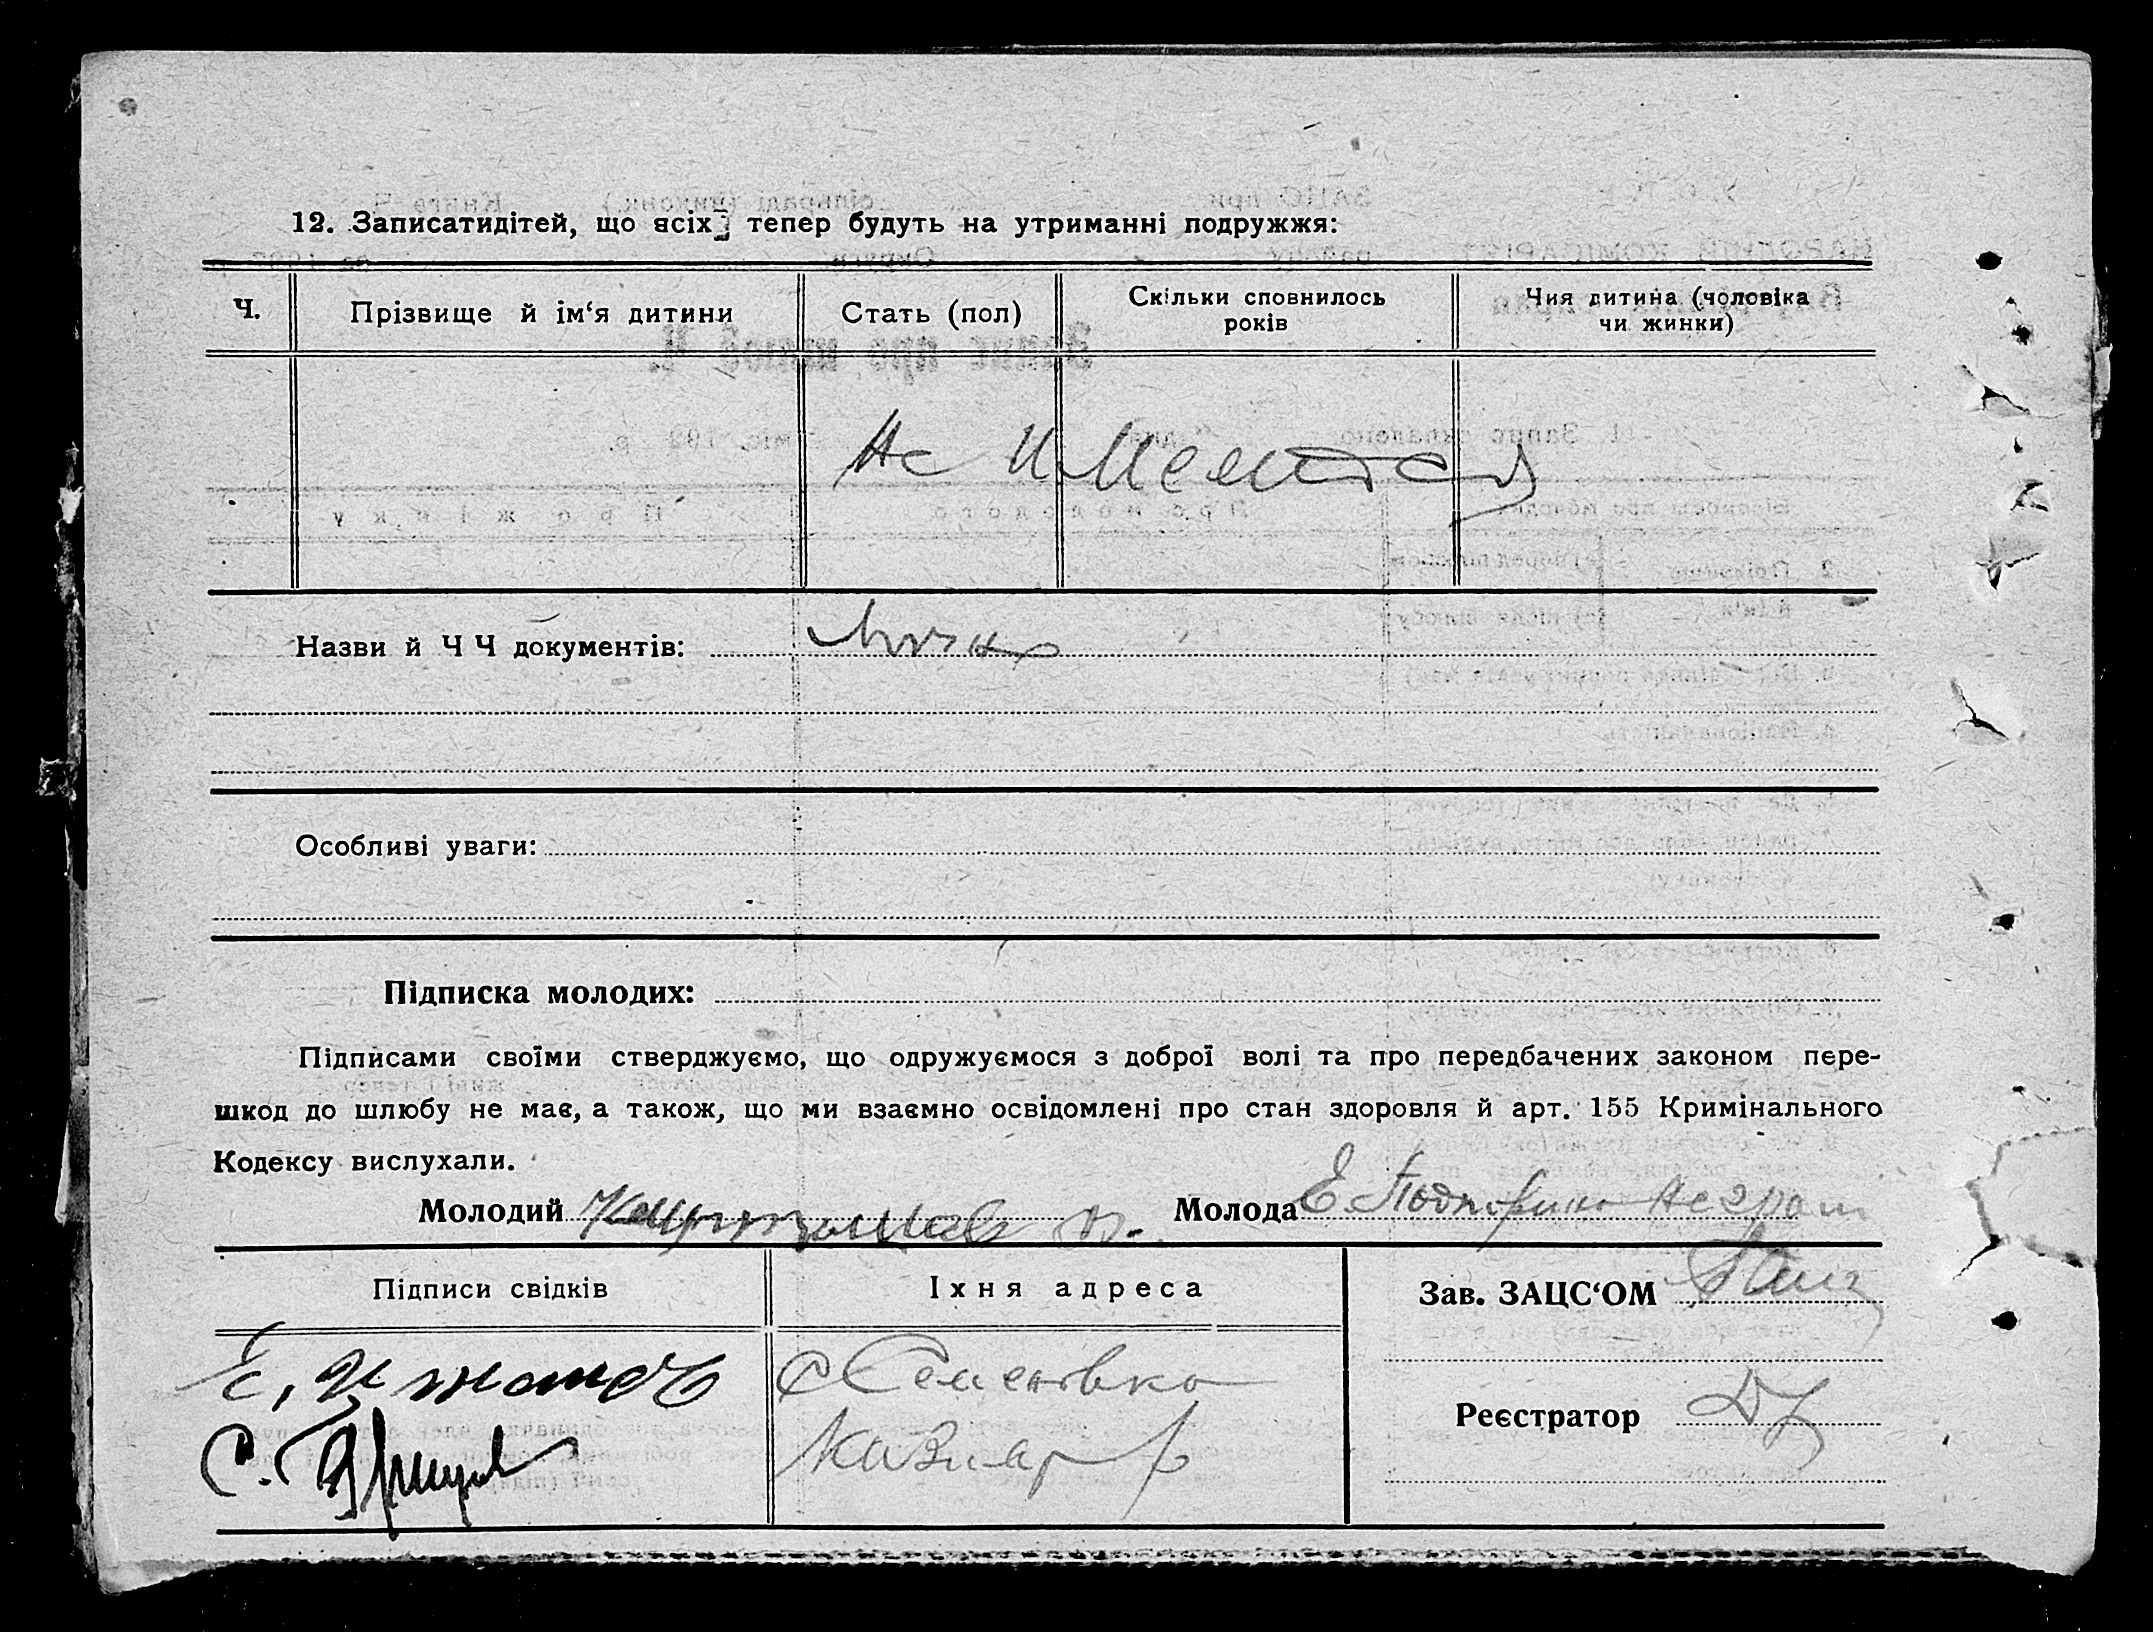 12. Записатидітей, що всіх тепер будуть на утриманні подружжя:
Ч.
Прізвище й ім‘я дитини
Стать (пол)
Скільки сповнилось
років
Чия дитина (чоловіка
чи жинки)
Не имеются
Назви й Ч Ч документів:
Особливі уваги:
Підписка молодих:
Підписами своїми стверджуємо, що одружуємося з доброї волі та про передбачених законом пере-
шкод до шлюбу не має, а також, що ми взаємно освідомлені про стан здоровля й арт. 155 Кримінального
Кодексу вислухали.
Молодий
Молода Е.
Підписи свідків
Іхня адреса
Зав. ЗАЦС‘ОМ
Е.
с Семеновка
С.
Реєстратор